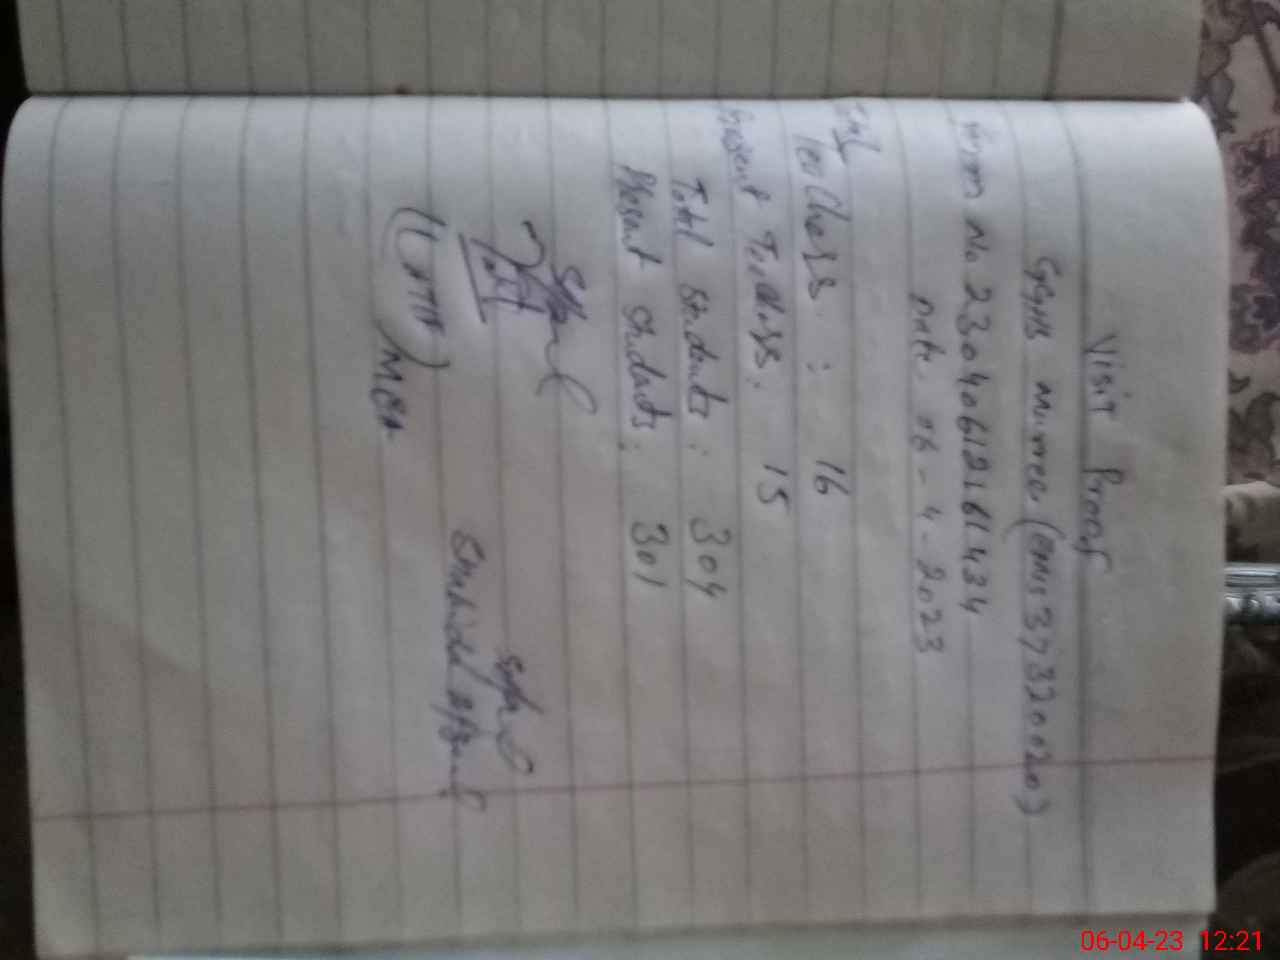 Visit Proof
GGHS Murree (EMIS 37320020)
Form No 230406121611434
Date. 06-4-2023
Total
Teachers : 16
Present Teachers. 15
Total students : 304
Present students: 301
(LATIF) MEA
06-04-23 12:21